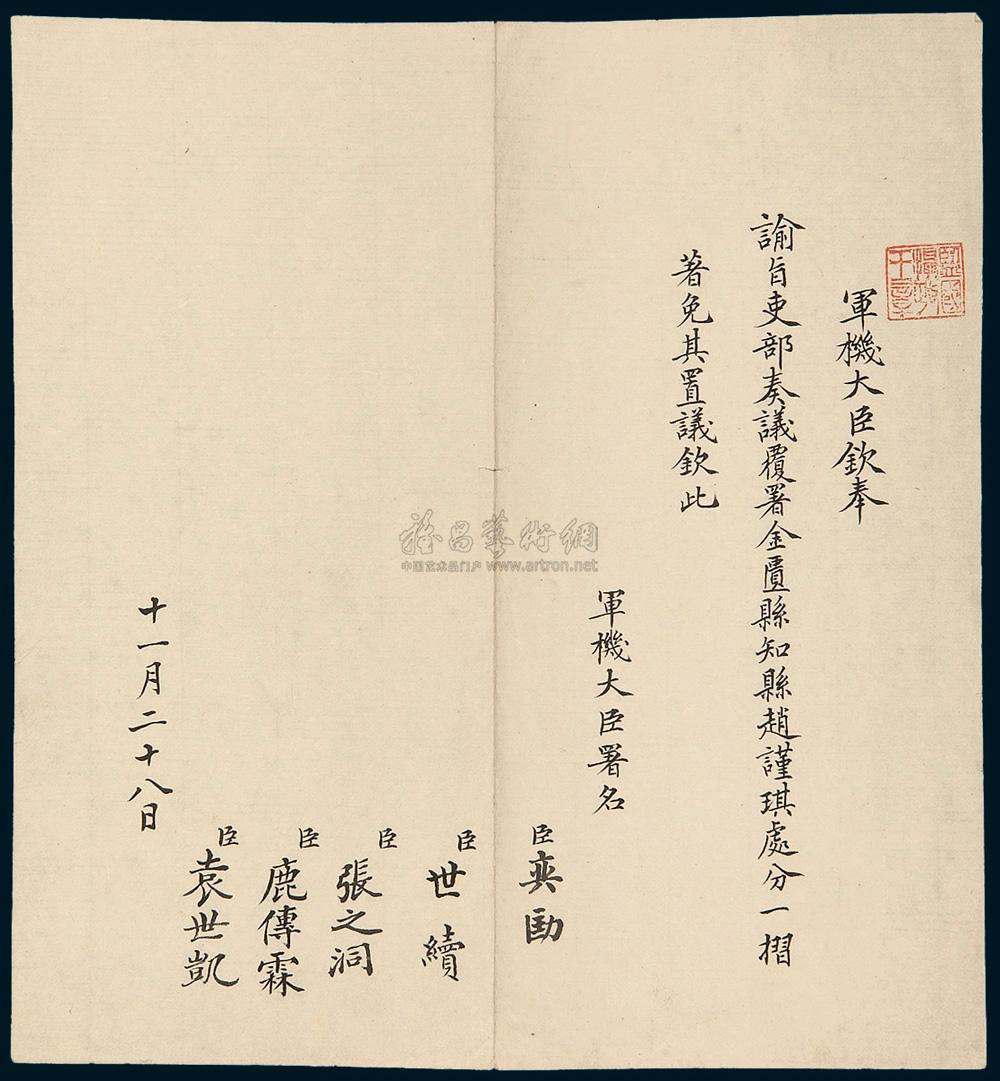 監國攝政王章
軍機大臣欽奉
諭旨吏部奏議覆署金匱縣知縣趙謹琪處分一摺
著免其置議欽此
軍機大臣署名
臣奕劻
臣世續
臣張之洞
臣鹿傳霖
臣袁世凱
十一月二十八日
雅昌藝術網
中国艺术品门户 www.artron.net